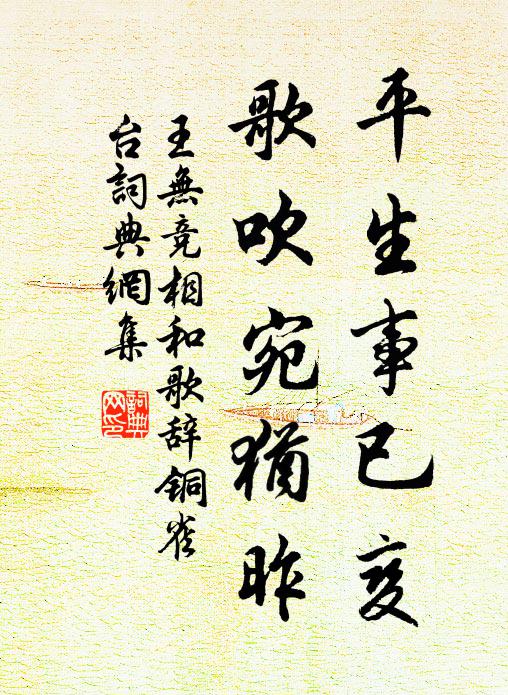 平生事已变
歌吹宛猶昨
王無竞相和歌辞铜雀
台詞典網集
詞典网印